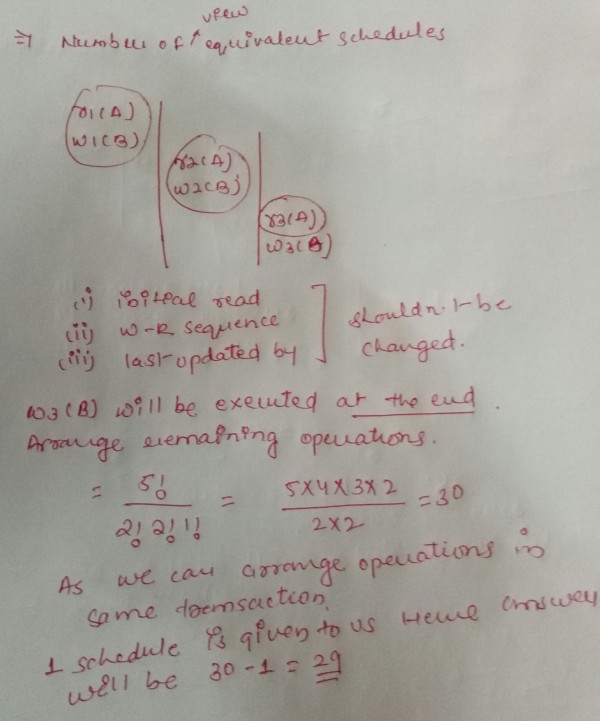 ⇒ Number of view equivalent schedules
r1(A)
w1(B)
r2(A)
w2(B)
r3(A)
w3(B)
(i) initeal read
(ii) w-R sequence
(iii) last updated by
shouldn't be changed.
w3(B) will be executed at the end.
Arrange remaining operations.
= 5! / 2! 2! 1! = 5X4X3X2 / 2X2 = 30
As we can arrange operations in
same transaction.
1 schedule is given to us Hence answer
will be 30-1 = 29